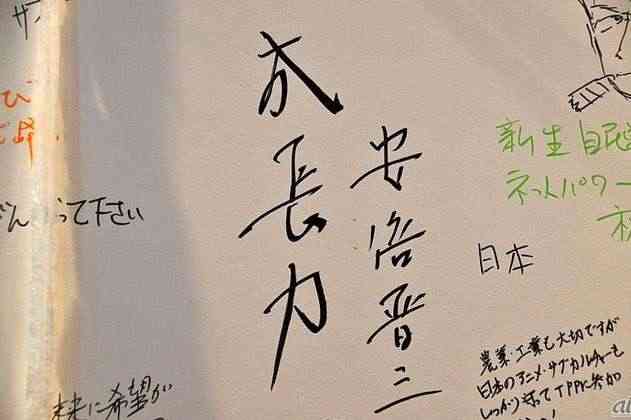 成長力
安倍晋三
新生自民
ネットパワー
日本
農業・工業も大切ですが
日本のアニメ・サブカルチャーも
しっかり守ってTPPに参加
って下さい
未来に希望が
び